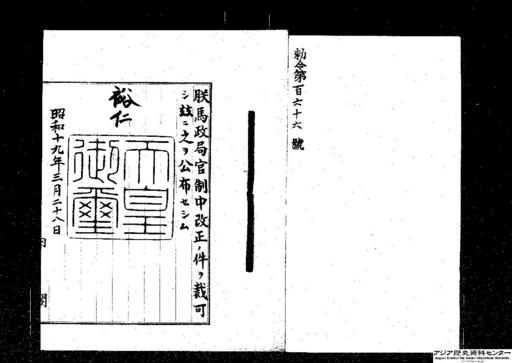 勅令第百六十六號
朕馬政局官制中改正ノ件ヲ裁可
シ玆ニ之ヲ公布セシム
裕仁
天皇
御璽
昭和十九年三月二十八日
内閣
アジア歴史資料センター
Japan Center for Asian Historical Records